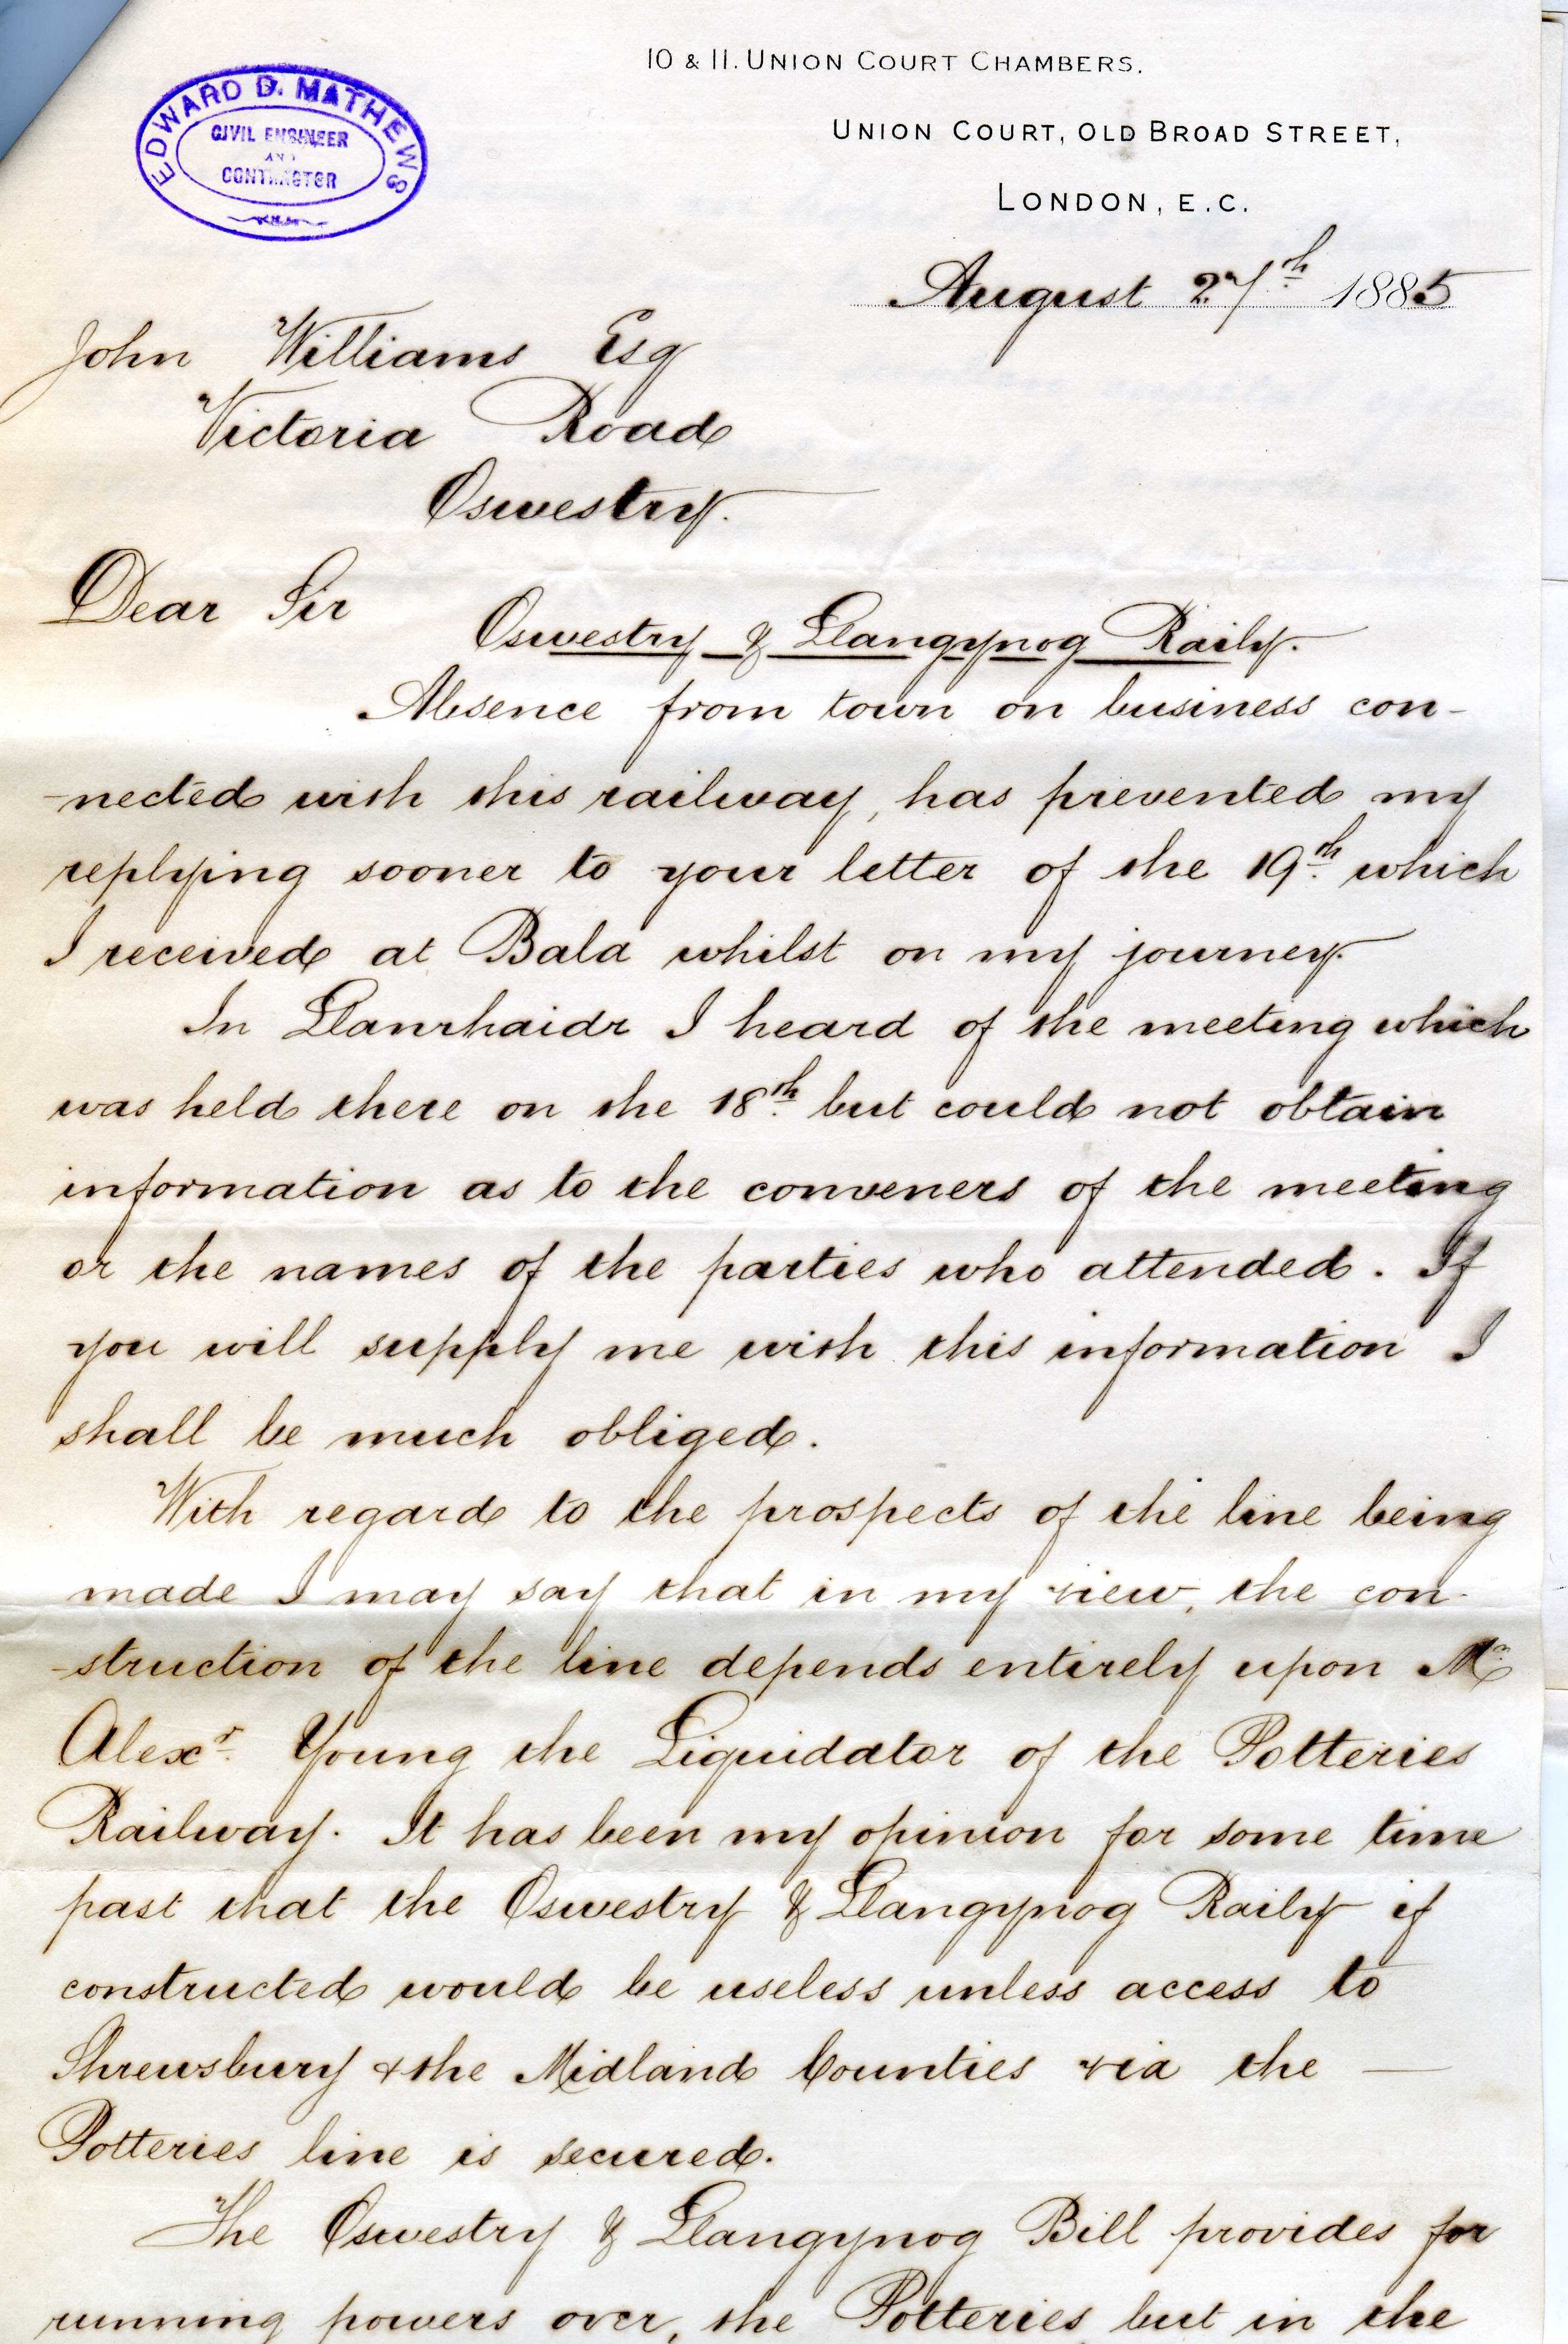 10 & 11. UNION COURT CHAMBERS.
EDWARD D. MATHEWS
CIVIL ENGINEER
AND
CONTRACTOR
UNION COURT, OLD BROAD STREET,
LONDON, E.C.
August 27th 1885
John Williams Esq
Victoria Road
Oswestry.
Dear Sir
Oswestry & Llangynog Raily.
Absence from town on business con-
-nected with this railway, has prevented my
replying sooner to your letter of the 19th. which
I received at Bala whilst on my journey.
In Llanrhaidr I heard of the meeting which
was held there on the 18th. but could not obtain
information as to the conveners of the meeting
or the names of the parties who attended. If
you will supply me with this information I
shall be much obliged.
With regard to the prospects of the line being
made I may say that in my view, the con-
-struction of the line depends entirely upon Mr.
Alexr. Young the Liquidator of the Potteries
Railway. It has been my opinion for some time
past that the Oswestry & Llangynog Raily if
constructed would be useless unless access to
Shrewsbury & the Midland Counties via the —
Potteries line is secured.
The Oswestry & Llangynog Bill provides for
running powers over, the Potteries but in the